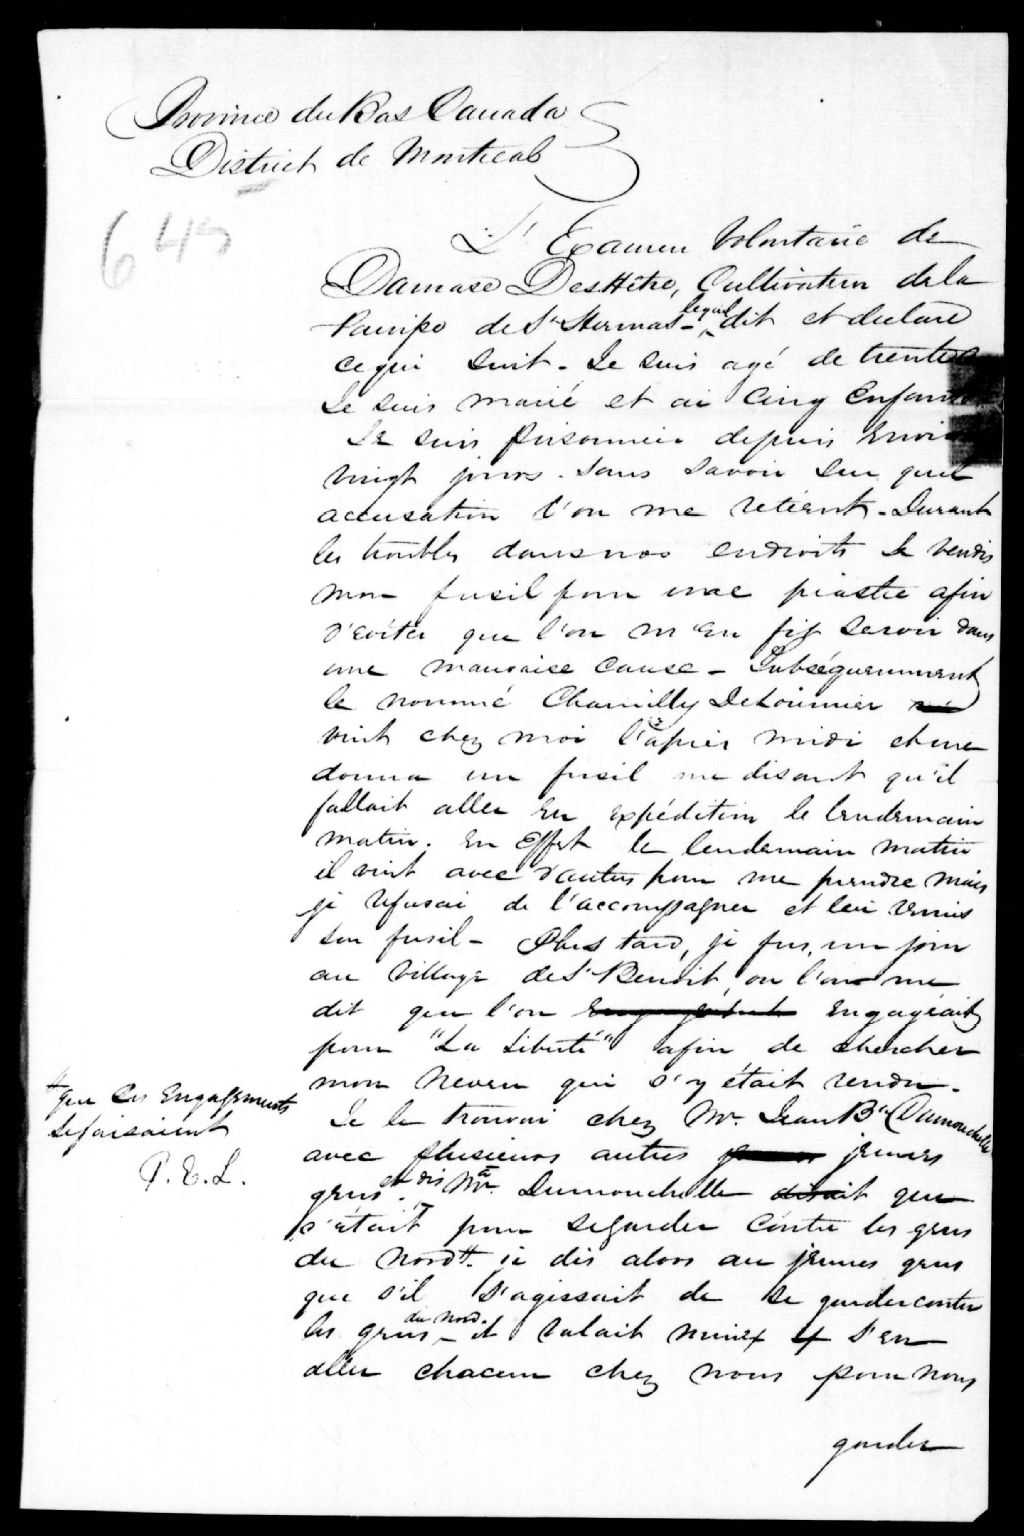 Province du Bas Canada
District de Montreal
645
L'Examen Volontaire de
Damase DesHêtre, Cultivateur de la
Paroisse de St Hermas - lequel dit et declare
ce qui suit - Je suis agé de trente
Je suis marié et ai cinq Enfants
Je suis prisonnier depuis Environ
vingt jours - sans savoir sur quel
accusation l'on me retient - Durant
les troubles dans nos endroits Je vendis
mon fusil pour une piastre afin
d'eviter que l'on m'en fit servir dans
une mauvaise cause - Subséquemment
le nommé Chamilly DeLorimier
vint chez moi l'après midi et me
donna un fusil me disant qu'il
fallait aller en expédition le lendemain
matin. En Effet le lendemain matin
il vint avec d'autres pour me prendre mais
je refusai de l'accompagner et leur remis
son fusil - Plus tard, je fus, un jour
au village de St Benoit, ou l'on me
dit que l'on engageait
pour "La Liberté" afin de chercher
mon neveu qui s'y était rendu -
Je le trouvai chez Mr. Jean Bte Dumouchelle
avec plusieurs autres jeunes
gens. et dis à Mr. Dumouchelle que
+ que ces Engagements
se faisaient
P. E. L.
s'était pour se garder contre les gens
du nord - je dis alors au jeunes gens
que s'il s'agissait de se garder contre
les gens du nord - il valait mieux s'en
aller chacun chez nous pour nous
garder